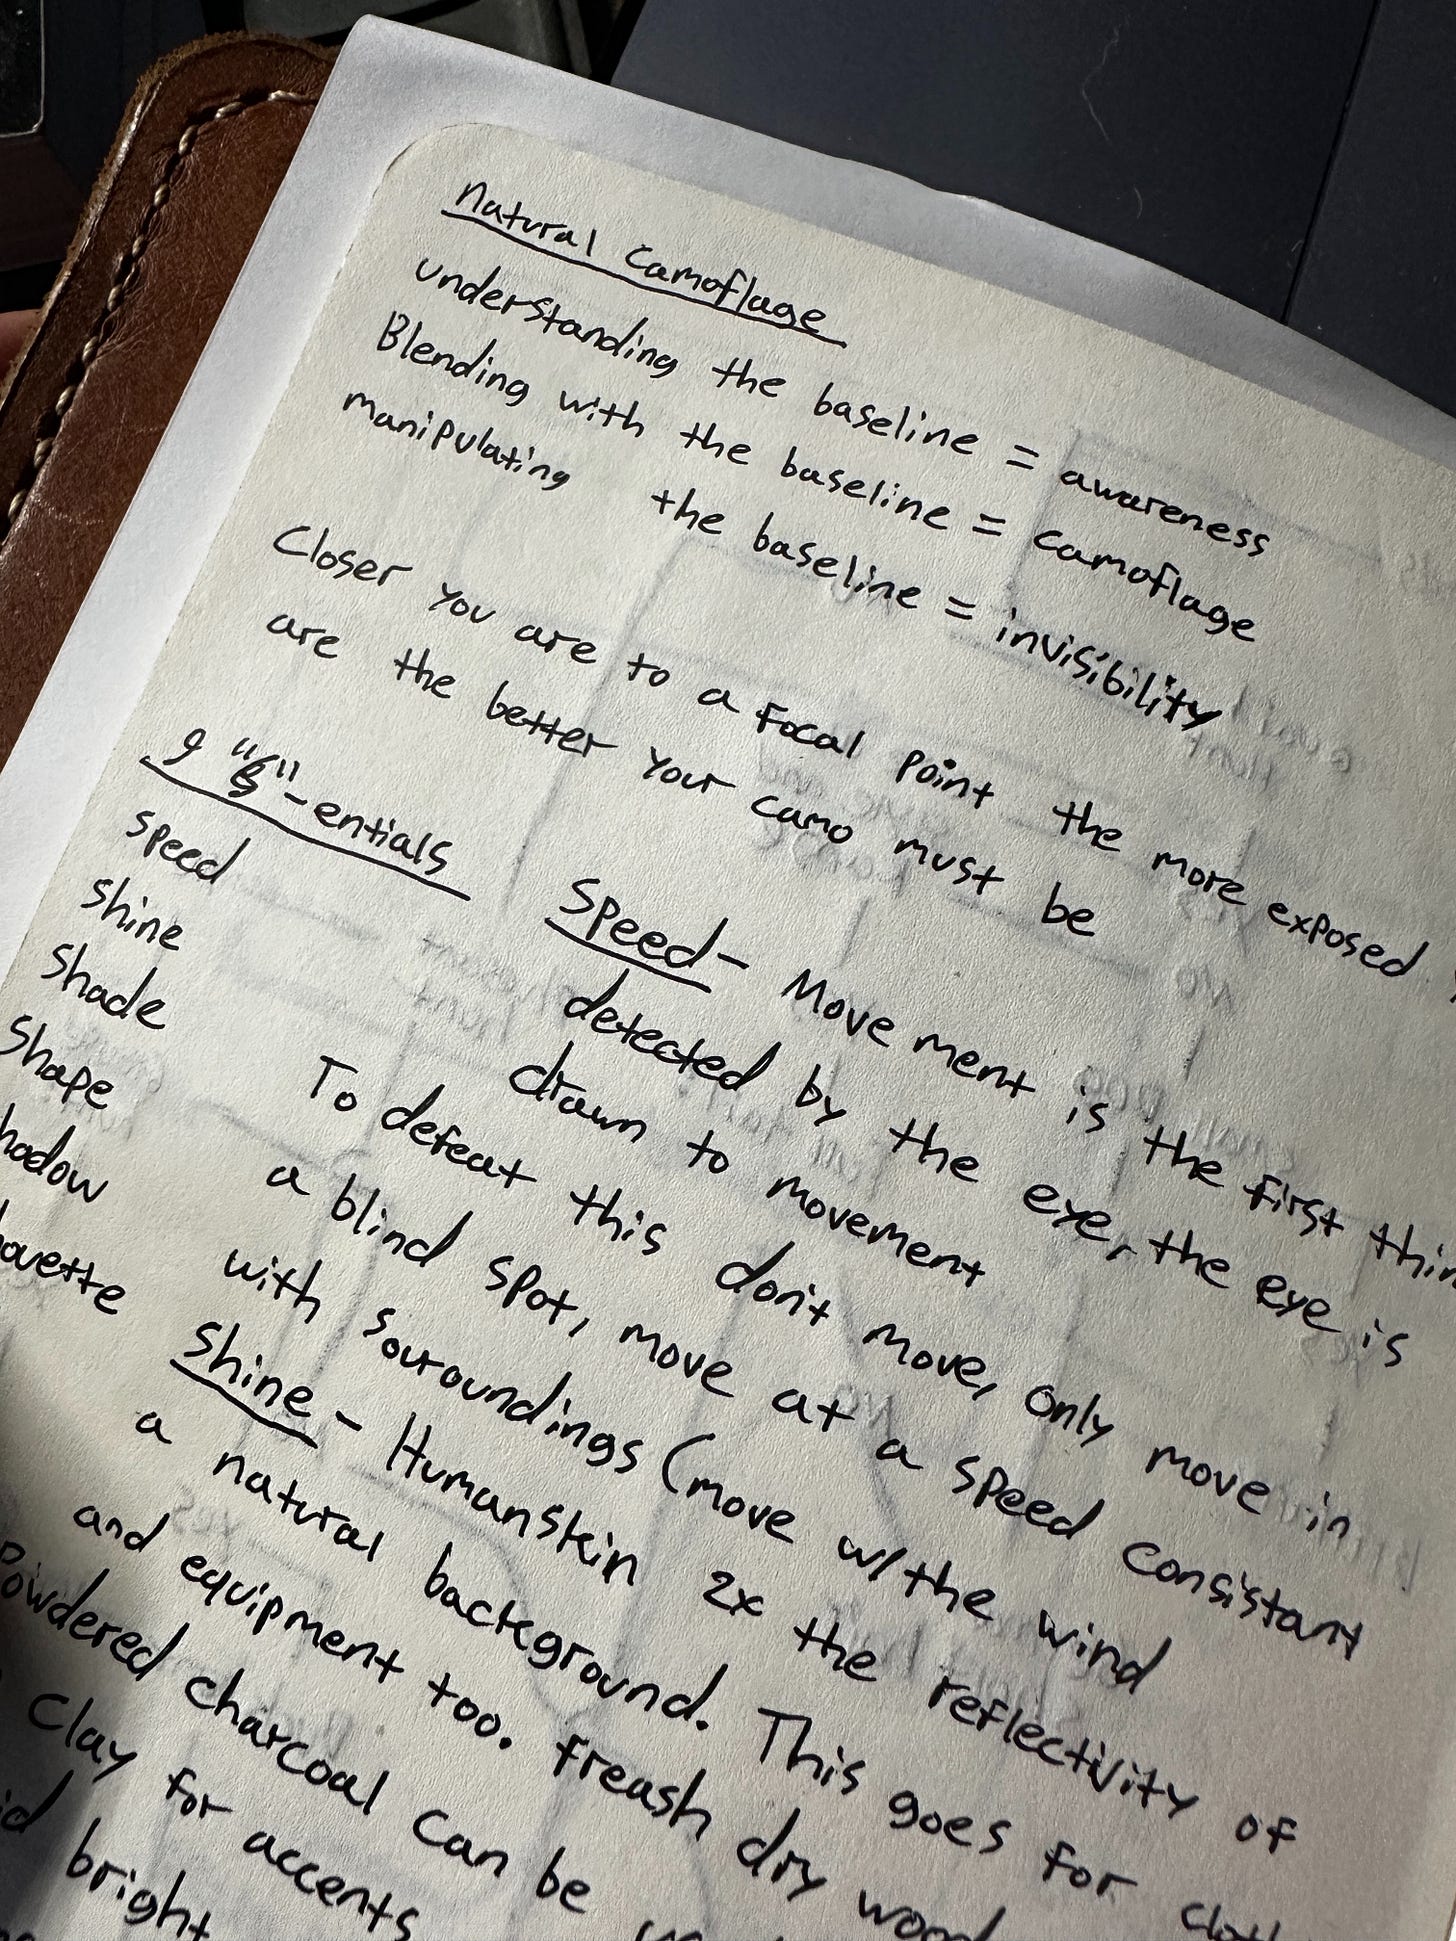 Natural Camoflage
understanding the baseline = awareness
Blending with the baseline = camoflage
manipulating the baseline = invisibility
Closer you are to a focal point the more exposed
are the better your camo must be
9 "S"-entials
speed
shine
shade
shape
hadow
ouette
Speed - Move ment is the first thin
detected by the eye, the eye is
drawn to movement
To defeat this don't move, only move in
a blind spot, move at a speed consistant
with souroundings (move w/the wind
Shine - Human skin 2x the reflectivity of
a natural background. This goes for cloth
and equipment too. Freash dry wood
Powdered charcoal can be
Clay for accents
bright